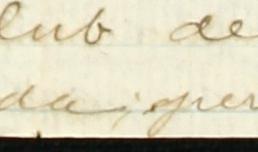 lub de
da; per